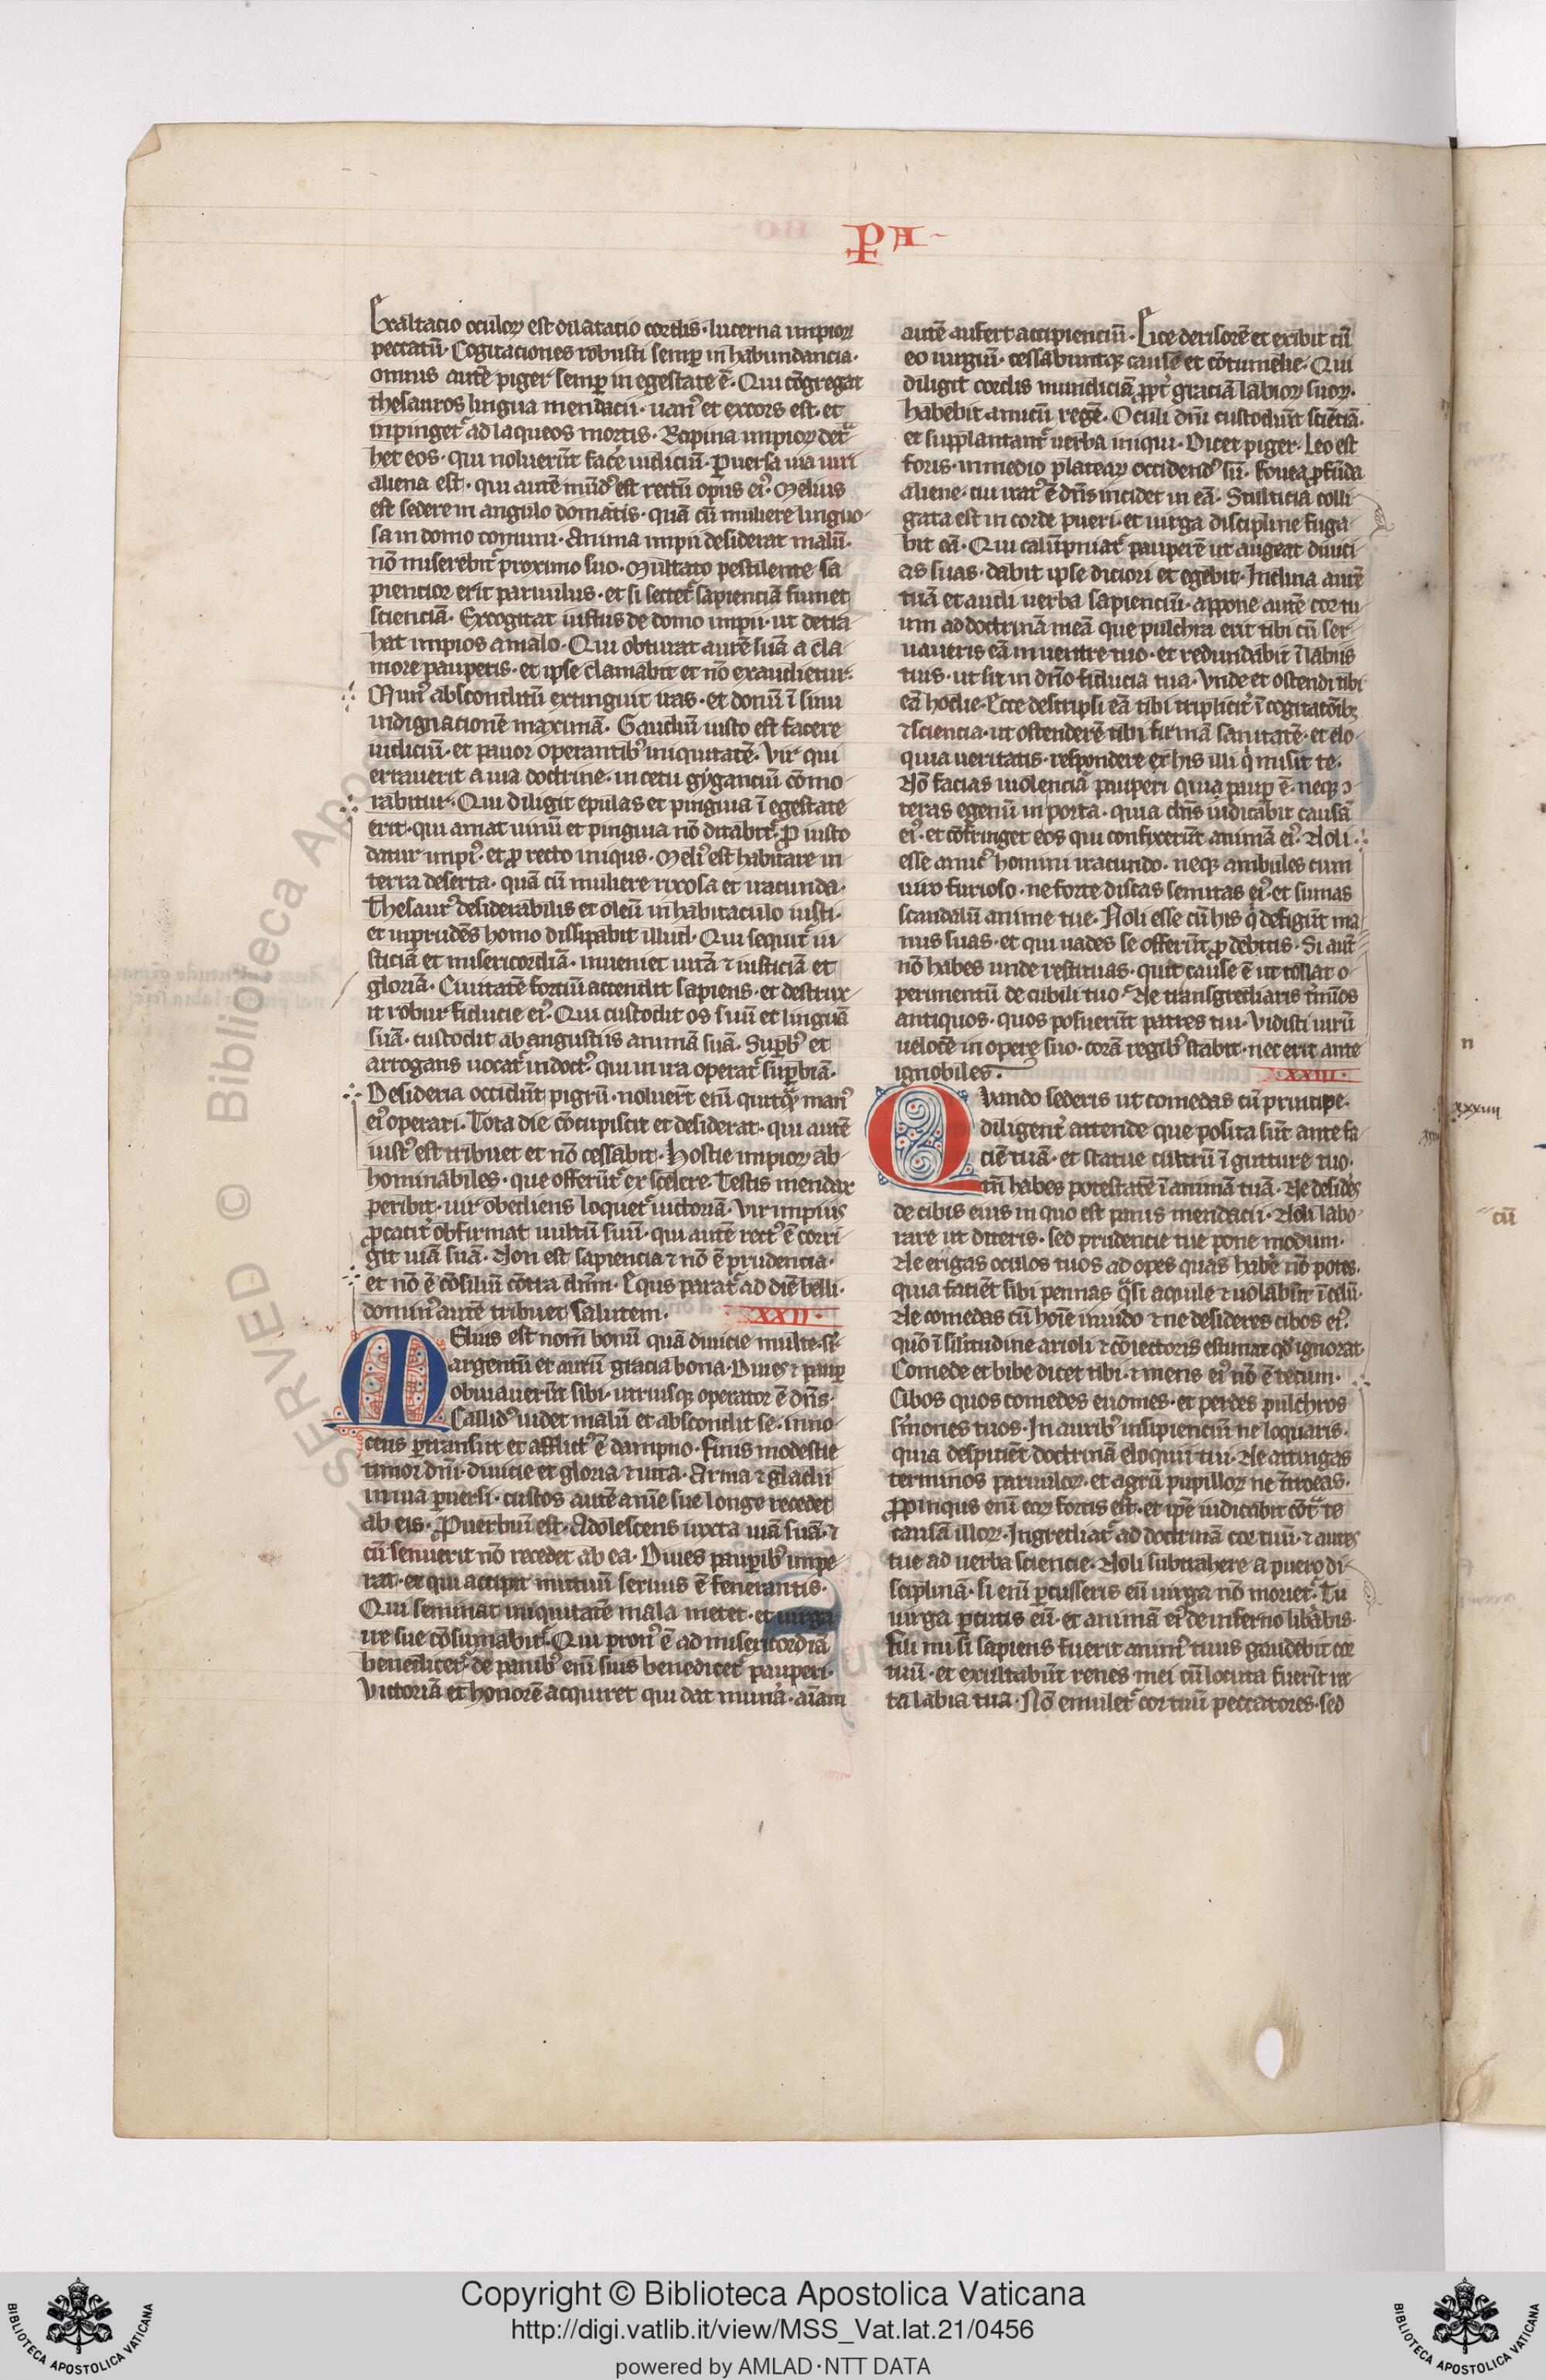 PA
Exaltacio oculoꝝ est dilatatio cordis · lucerna impioꝝ
peccatū · Cogitaciones robusti semꝑ in habundancia ·
omnis autē piger semꝑ in egestate ē · Qui cōgregat
thesauros lingua mendacii · uanꝰ et excors est · et
inpinget᷑ ad laqueos mortis · Rapina impioꝝ det᷑ᷓ
het eos · qui noluerūt facͤe iudiciū · Ꝑuersa uia uiri
aliena est · qui autē mūdꝰ est rectū opus eiꝰ · Melius
est sedere in angulo domatis · quā cū muliere linguo
sa in domo cōmuni · Anima impii desiderat malū ·
nō miserebit᷑ proximo suo · Multato pestilente sa
piencior erit paruulus · et si sectet᷑ sapienciā sumet
scienciā · Excogitat iustus de domo impii · ut detra
hat impios a malo · Qui obturat aurē suā a cla
more pauperis · et ipse clamabit et nō exaudietur ·
Munꝰ absconditū extinguit iras · et donū ī sinu
indignacionē maximā · Gaudiū iusto est facere
iudiciū · et pauor operantibꝰ iniquitatē · Vir qui
errauerit a uia doctrine · in cetu gyganciū cōmo
rabitur · Qui diligit epulas et pinguia ī egestate
erit · qui amat uinū et pinguia nō ditabit᷑ · Ꝓ iusto
datur impiꝰ · et ꝓ recto iniqus · Meliꝰ est habitare in
terra deserta · quā cū muliere rixosa et iracunda ·
Thesaurꝰ desiderabilis et oleū in habitaculo iusti ·
et inprudēs homo dissipabit illud · Qui sequit᷑ iu
sticiā et misericordiā · inueniet uitā ⁊ iusticiā et
gloriā · Ciuitatē fortiū ascendit sapiens · et destrux
it robur fiducie eiꝰ · Qui custodit os suū et linguā
suā · custodit ab angustiis animā suā · Suꝑbꝰ et
arrogans uocat᷑ indoctꝰ · qui in ira operat᷑ suꝑbiā ·
Desideria occidūt pigrū · noluerūt enī quicqͣꝫ manꝰ
eiꝰ operari · Tota die cōcupiscit et desiderat · qui autē
iustꝰ est tribuet et nō cessabit · Hostie impioꝝ ab
hominabiles · que offerūt᷑ ex scelere · Testis mendax
peribit · uir obediens loquet᷑ uictoriā · Vir impius
ꝓcacit᷑ obfirmat uultū suū · qui autē rectꝰ ē corri
git uiā suā · Non est sapiencia ⁊ nō ē prudencia ·
et nō ē cōsiliū cōtra dn̄m · Equs parat᷑ ad diē belli ·
dominꝰ autē tribuet salutem · XXII ·
Melius est nom̄ bonū quā diuicie multe · sꝑ
argentū et aurū gracia bona · Diues ⁊ pauꝑ
obuiauerūt sibi · utriusqꝫ operator ē dn̄s ·
Callidꝰ uidet malū et abscondit se · inno
cens ꝑtransiit et afflictꝰ ē dampno · Finis modestie
timor dn̄i · diuicie et gloria ⁊ uita · Arma ⁊ gladii
in uia ꝑuersi · custos autē anīe sue longe recedet
ab eis · Ꝓuerbiū est · Adolescens iuxta uiā suā · ⁊
cū senuerit nō recedet ab ea · Diues pauꝑibꝰ impe
rat · et qui accipit mutuū seruus ē fenerantis ·
Qui seminat iniquitatē mala metet · et uirga
ire sue cōsumabit᷑ · Qui pronꝰ ē ad misericordiā
benedicet᷑ · de panibꝰ enī suis benedicet᷑ pauperi ·
Victoriā et honorē acquiret qui dat munͣa · aīam
autē aufert accipienciū · Eice derisorē et exibit cū
eo iurgiū · cessabuntqꝫ cause et cōtumelie · Qui
diligit cordis mundiciā ꝓpt᷑ graciā labioꝝ suoꝝ ·
habebit amicū regē · Oculi dn̄i custodiūt sciētiā ·
et supplantant᷑ uerba iniqui · Dicet piger · Leo est
foris · in medio plateaꝝ occidendꝰ sū · Fouea ꝓfūda
aliene · cui iratꝰ ē dn̄s incidet in eā · Stulticia colli
gata est in corde pueri · et uirga discipline fuga
bit eā · Qui calūpniat᷑ pauperē ut augeat diuici
as suas · dabit ipse diciori et egebit · Inclina aurē
tuā et audi uerba sapienciū · appone autē cor tu
um ad doctrinā meā que pulchra erit tibi cū ser
uaueris eā in uentre tuo · et redundabit ī labiis
tuis · ut sit in dn̄o fiducia tua · Vnde et ostendi tibi
eā hodie · Ecce descripsi eā tibi triplicit᷑ ī cogitatōibꝫ
⁊ sciencia · ut ostenderē tibi firmā sanitatē · et elo
quia ueritatis · respondere ex his illi qͥ misit te ·
Nō facias uiolenciā pauperi quia pauꝑ ē · neqꝫ ↄ
teras egenū in porta · quia dn̄s iudicabit causā
eiꝰ · et cōfringet eos qui confixerūt animā eiꝰ · Noli
esse amicꝰ homini iracundo · neqꝫ ambules cum
uiro furioso · ne forte discas semitas eiꝰ · et sumas
scandalū anime tue · Noli esse cū his qͥ defigūt ma
nus suas · et qui uades se offerūt ꝓ debitis · Si autē
nō habes unde restituas · quit cause ē ut tollat o
perimentū de cubili tuo · Ne transgrediaris tͥmīos
antiquos · quos posuerūt patres tui · Vidisti uirū
uelocē in opere suo · corā regibꝰ stabit · nec erit ante
ignobiles · XXIII ·
Quando sederis ut comedas cū principe ·
diligent᷑ attende que posita sūt ante fa
ciē tuā · et statue cultrū ī gutture tuo ·
tn̄ habes potestatē ī animā tuā · Ne desides
de cibis eius in quo est panis mendacii · Noli labo
rare ut diteris · sed prudencie tue pone modum ·
Ne erigas oculos tuos ad opes quas habͤe nō potes ·
quia faciēt sibi pennas qͣsi aquile ⁊ uolabūt ī celū ·
Ne comedas cū hoīe inuido ⁊ ne desideres cibos eiꝰ ·
quō ī sil'itudine arioli ⁊ cōiectoris estimat qd' ignorat ·
Comede et bibe dicet tibi · ⁊ mens eiꝰ nō ē tecum ·
Cibos quos comedes euomes · et perdes pulchros
sͤmones tuos · In auribꝰ insipienciū ne loquaris ·
quia despiciēt doctrinā eloquii tui · Ne attingas
terminos paruuloꝝ · et agrū pupilloꝝ ne ītroeas ·
Ꝓpinqus enī eoꝝ fortis est · et ip̄e iudicabit cōtͣ te
causā illoꝝ · Ingrediat᷑ ad doctrinā cor tuū · ⁊ aures
tue ad uerba sciencie · Noli subtrahere a puero di
sciplinā · si enī ꝑcusseris eū uirga nō moriet᷑ · Tu
uirga ꝑcutis eū · et animā eiꝰ de inferno libͤabis ·
Fili mi si sapiens fuerit animꝰ tuus gaudebit cor
tuū · et exultabūt renes mei cū locuta fuerīt rec
ta labia tua · Nō emulet᷑ cor tuū peccatores · sed
n
xxxiiii
cū
Copyright © Biblioteca Apostolica Vaticana
http://digi.vatlib.it/view/MSS_Vat.lat.21/0456
powered by AMLAD · NTT DATA
BIBLIOTECA APOSTOLICA VATICANA
BIBLIOTECA APOSTOLICA VATICANA